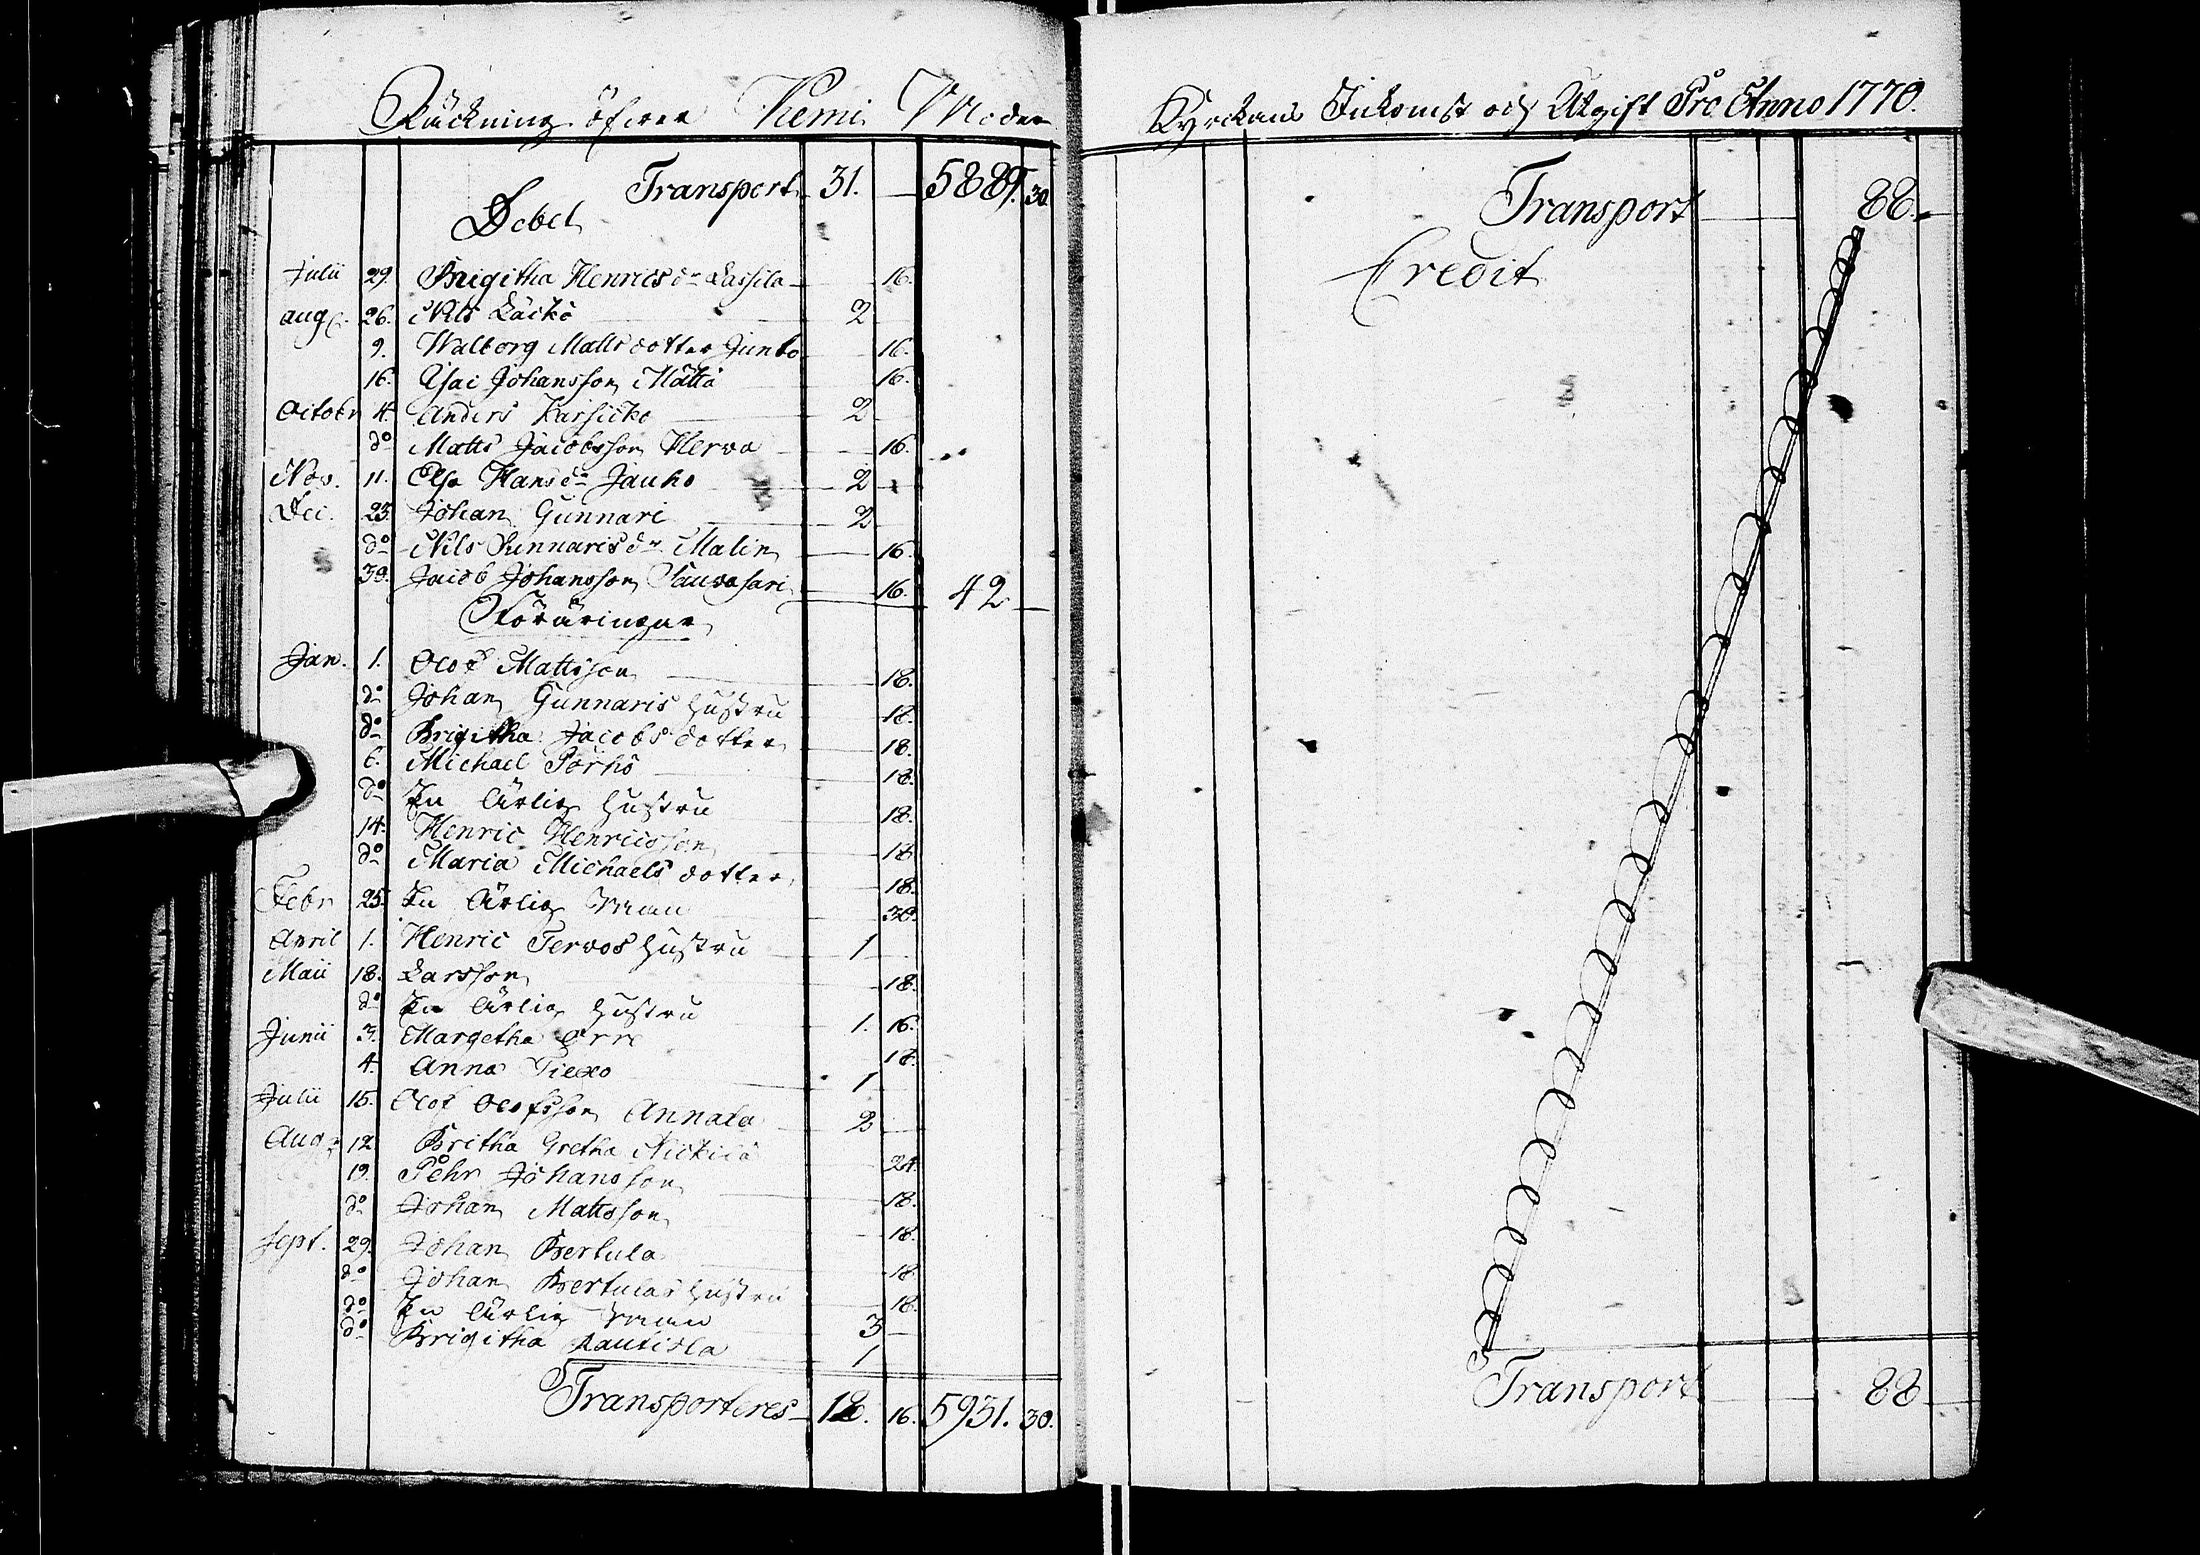 Räckning öfwer Kemi Moder
Transport 31. — 5889. 30
Debet
Julii 29. Brigitha Henrics dr Lassila — 16.
aug. 26. Nils Läckö 2 —
9. Walborg Matts dotter Junto — 16.
16. Isac Johansson Mätta — 16.
Octobr 4. Anders Karsicko 2 —
do Matts Jacobsson Herva — 16.
Nov. 11. Elsa Hans dr Jauho 2 —
Dec. 25. Johan Gunnari 2 —
do Nils Gunnaris dr Malin — 16.
30. Jacob Johansson Sauvosari — 16. 42 —
Föräringar
Jan. 1. Olof Mattsson — 18.
do Johan Gunnaris hustru — 18.
do Brigitha Jacobs dotter — 18.
6. Michael Pörhö — 18.
do En ärlig hustru — 18.
14. Henric Henricsson — 18
do Maria Michaels dotter — 18.
Febr 25. En ärlig man — 30.
April 1. Henric Tervos hustru 1 —
Maii 18. Larsson — 18.
do En ärlig hustru 1. 16.
Junii 3. Margetha Orre — 18.
4. Anna Piexo 1 —
Julii 15. Olof Olofsson Annala 2 —
Aug. 12 Britha Gretha Nickilä — 24.
19. Pehr Johansson — 18.
do Johan Mattsson — 18.
Sept. 29. Johan Bertula — 18
do Johan Bertulas hustru — 18.
do En ärlig man 3 —
do Brigitha Rautiola 1
Transporteres 18. 16. 5931. 30.
Kyrckans Inkomst och Utgift Pro Anno 1770.
Transport 88. —
Credit
Transport 88 —